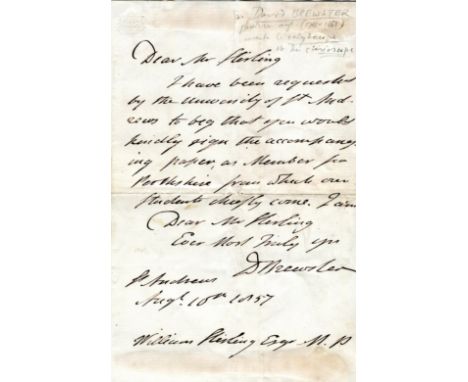 Sir David BREWSTER
Dear Mr Stirling
I have been requested
by the University of St And-
rews to beg that you would
kindly sign the accompany-
ing paper, as Member for
Perthshire from which our
students chiefly come. I am
Dear Mr Stirling
Ever Most Truly yrs
D Brewster
St Andrews
Augt 10th 1857
William Stirling Esqr M.P